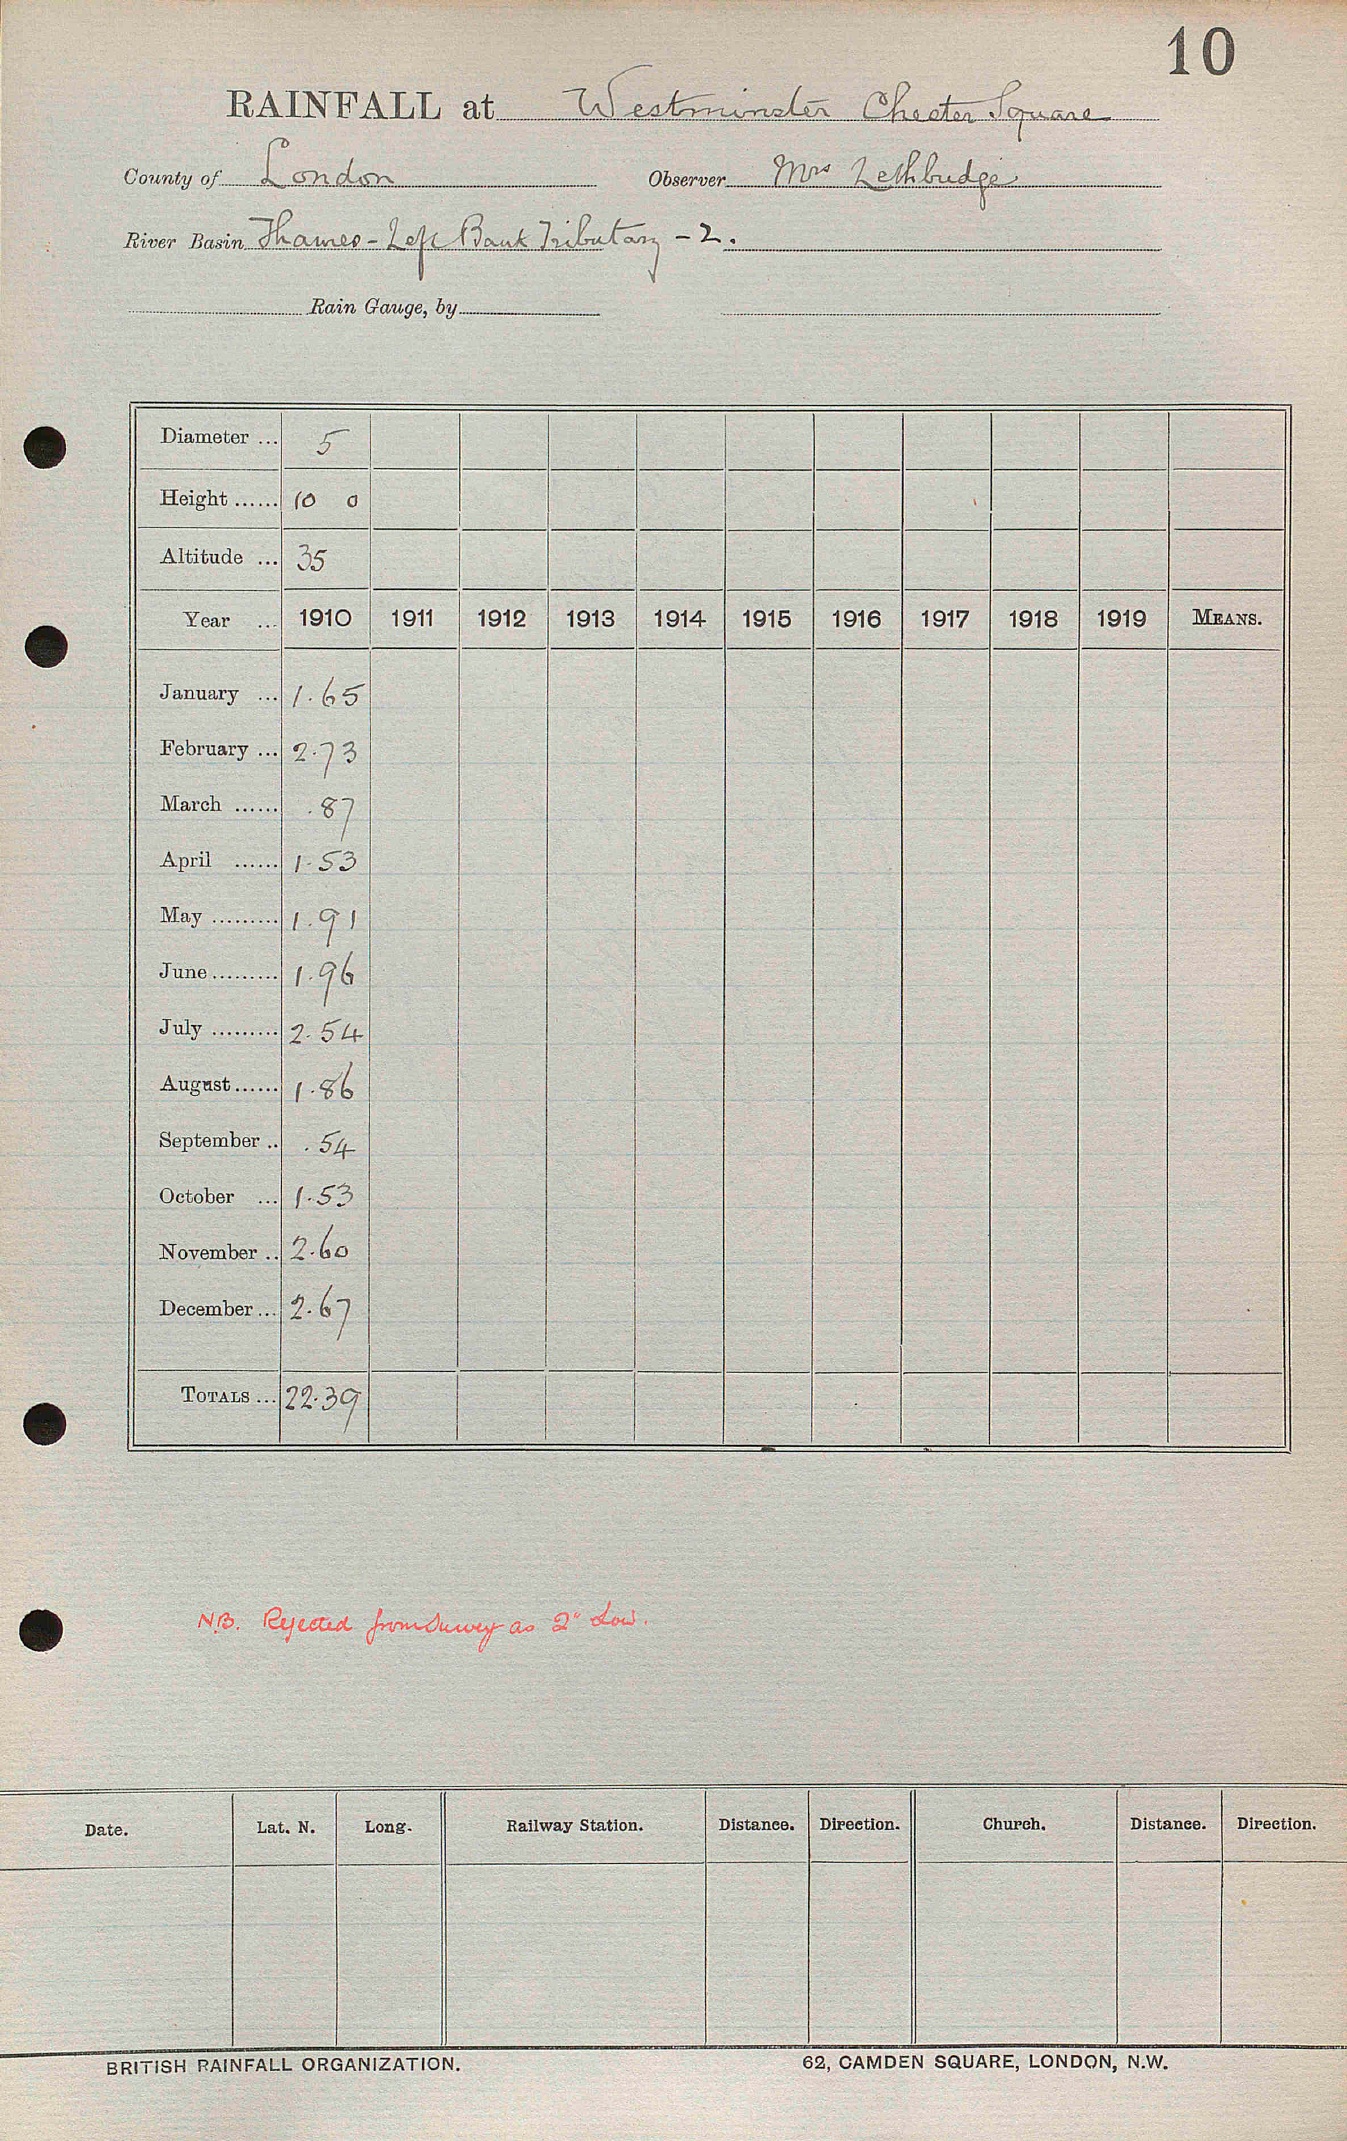 10
RAINFALL at Westminster Chester Square
County of London Observer Mrs Lethbridge
River Basin Thames - Left Bank Tributary - 2.
Rain Gauge, by
Diameter ... 5
Height ...... 10 0
Altitude ... 35
Year ... 1910 1911 1912 1913 1914 1915 1916 1917 1918 1919 MEANS.
January ... 1.65
February ... 2.73
March ...... .87
April ...... 1.53
May ......... 1.91
June ......... 1.96
July ......... 2.54
August ...... 1.86
September .. .54
October ... 1.53
November .. 2.60
December ... 2.67
TOTALS ... 22.39
N.B. Rejected from Survey as 2" Low.
Date. Lat. N. Long. Railway Station. Distance. Direction. Church. Distance. Direction.
BRITISH RAINFALL ORGANIZATION. 62, CAMDEN SQUARE, LONDON, N.W.